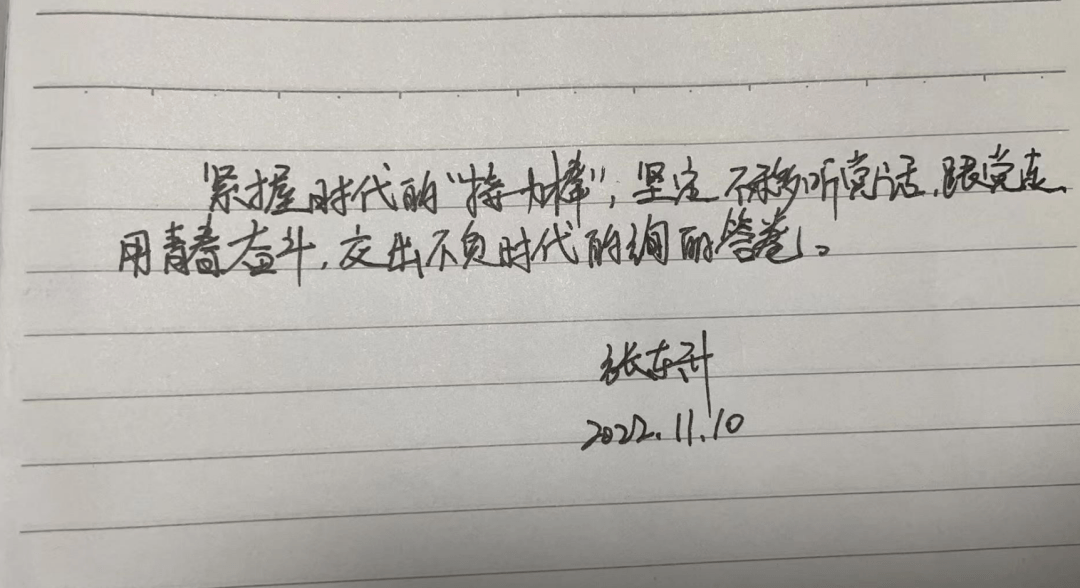 紧握时代的“接力棒”，坚定不移听党话、跟党走、
用青春奋斗，交出不负时代的绚丽答卷。
张东升
2022.11.10